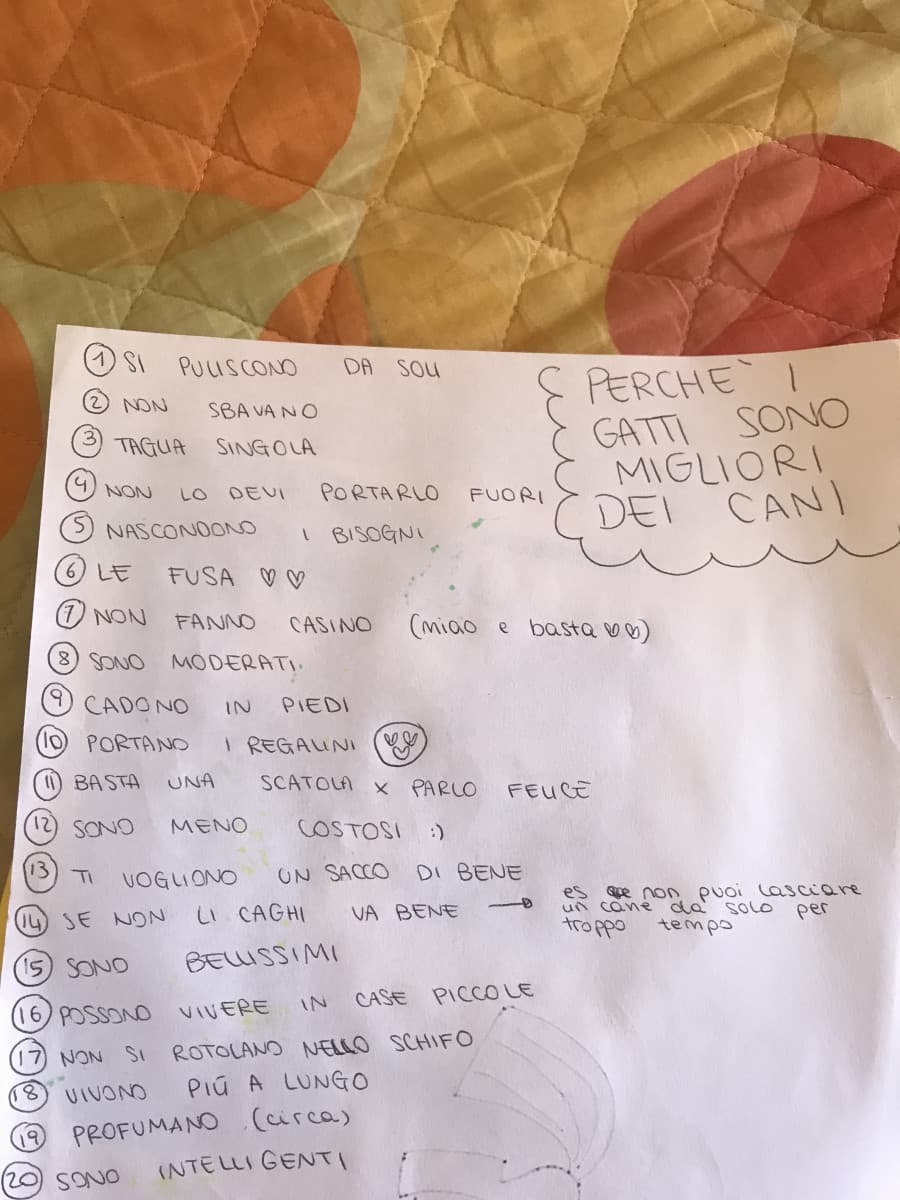 PERCHE' I
GATTI SONO
MIGLIORI
DEI CANI
1 SI PULISCONO DA SOLI
2 NON SBAVANO
3 TAGLIA SINGOLA
4 NON LO DEVI PORTARLO FUORI
5 NASCONDONO I BISOGNI
6 LE FUSA ♡♡
7 NON FANNO CASINO (miao e basta ♡♡)
8 SONO MODERATI
9 CADONO IN PIEDI
10 PORTANO I REGALINI
11 BASTA UNA SCATOLA x FARLO FELICE
12 SONO MENO COSTOSI :)
13 TI VOGLIONO UN SACCO DI BENE
14 SE NON LI CAGHI VA BENE → es non puoi lasciare
un cane da solo per
troppo tempo
15 SONO BELLISSIMI
16 POSSONO VIVERE IN CASE PICCOLE
17 NON SI ROTOLANO NELLO SCHIFO
18 VIVONO PIÙ A LUNGO
19 PROFUMANO (circa)
20 SONO INTELLIGENTI